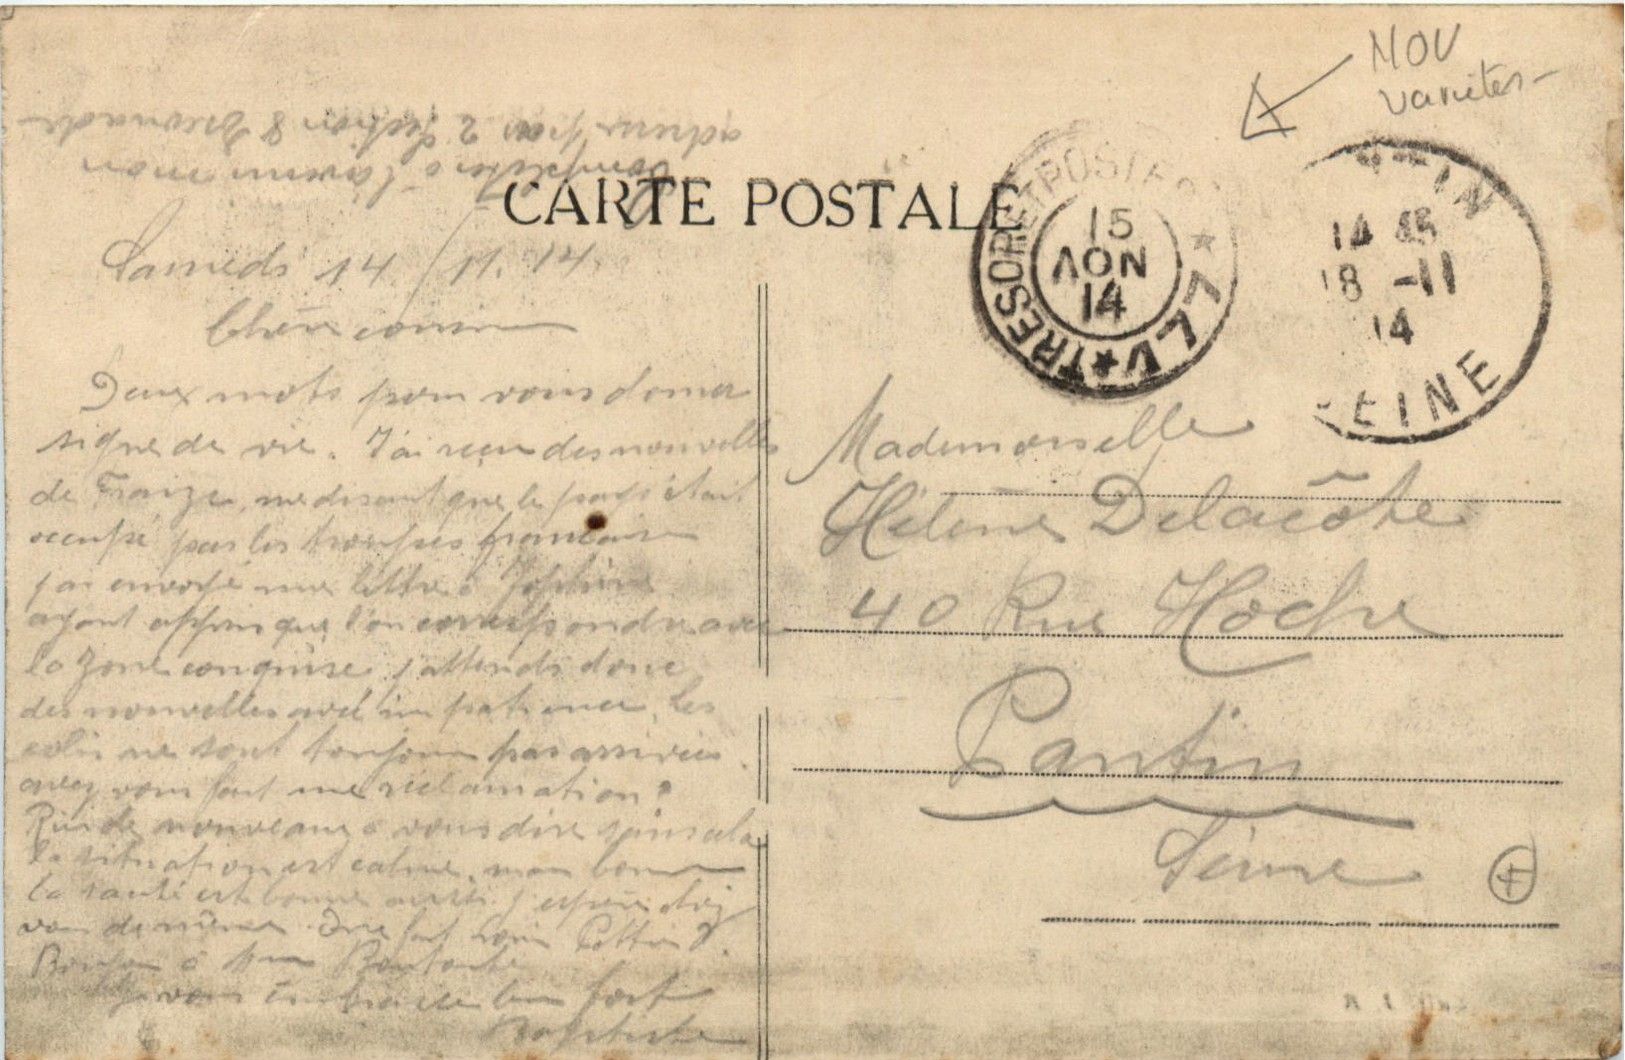 NOV
variétés
adresse par 2 Section 8
Complétez à l'avenir mon
CARTE POSTALE
TRESOR ET POSTES
15
NOV
14
14 45
18 -11
14
SEINE
Samedi 14/11.14.
Chère cousine
Deux mots pour vous donner
signe de vie. J'ai reçu des nouvelles
de me disant que le pays était
occupé par les troupes françaises
j'ai envoyé une lettre à Joséphine
ayant appris que l'on correspondre avec
la zone conquise, j'attends donc
des nouvelles avec impatience, les
colis ne sont toujours pas arrivés.
avez vous fait une réclamation?
Rien de nouveau à vous dire sinon
la situation est calme, mon
la santé est bonne aussi j'espère chez
vous de même. Que fait
Bonjour à
Je vous embrasse bien fort
Baptiste
Mademoiselle
Hélène Delacôte
40 Rue Hoche
Pantin
Seine